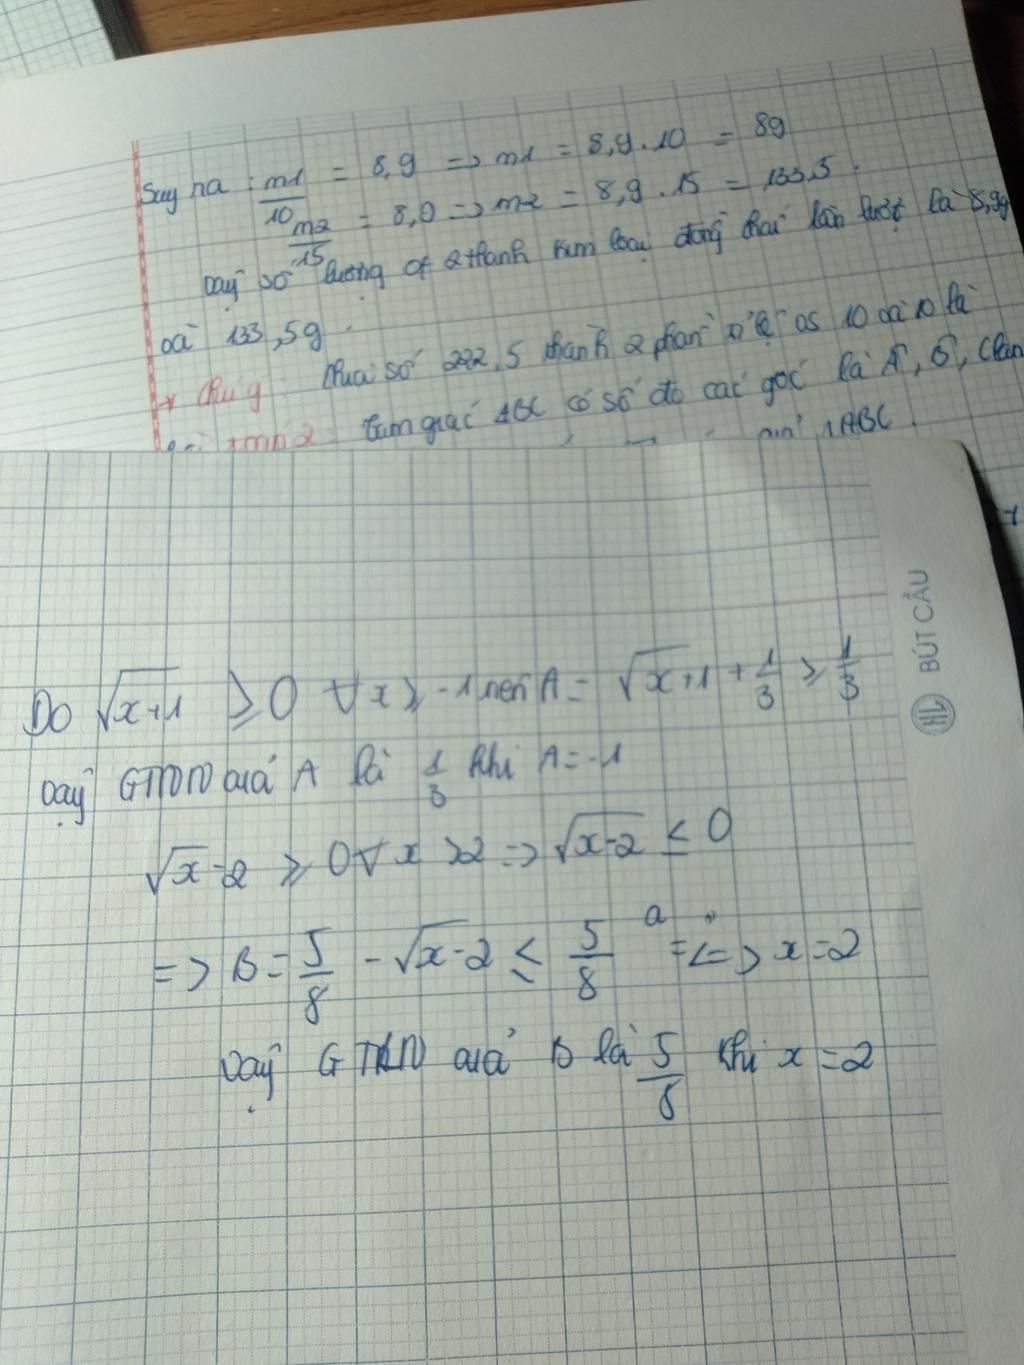 Suy ra : m1/10 = 8,9 => m1 = 8,9.10 = 89
m2/15 = 8,9 => m2 = 8,9.15 = 133,5.
Vậy số lượng of 2 thanh kim loại đồng chất lần lượt là 8,9g
và 133,5g.
* Chú ý: chia số 222,5 thành 2 phần
tam giác ABC có số đo các góc là
ABC.
BÚT CẦU
Do √x+1 ≥ 0 ∀x ≥ -1 nên A = √x+1 + 1/3 ≥ 1/3
Vậy GTNN của A là 1/3 khi A = -1
√x-2 ≥ 0 ∀ x >2 => √x-2 ≤ 0
=> B = 5/8 - √x-2 ≤ 5/8 => x = 2
Vậy GTLN của B là 5/8 khi x = 2